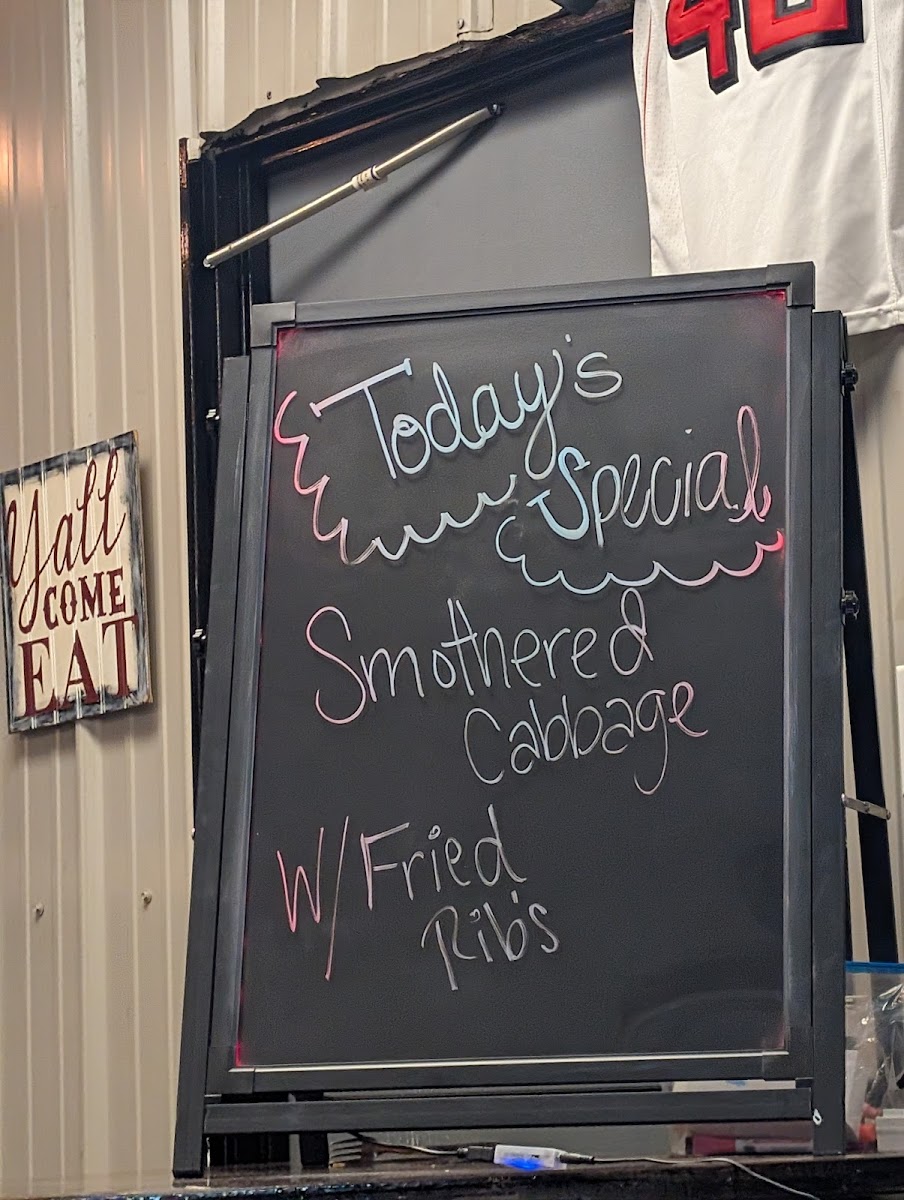 40
Today's
Special
Smothered
Cabbage
W/ Fried
Rib's
Y'all
COME
EAT